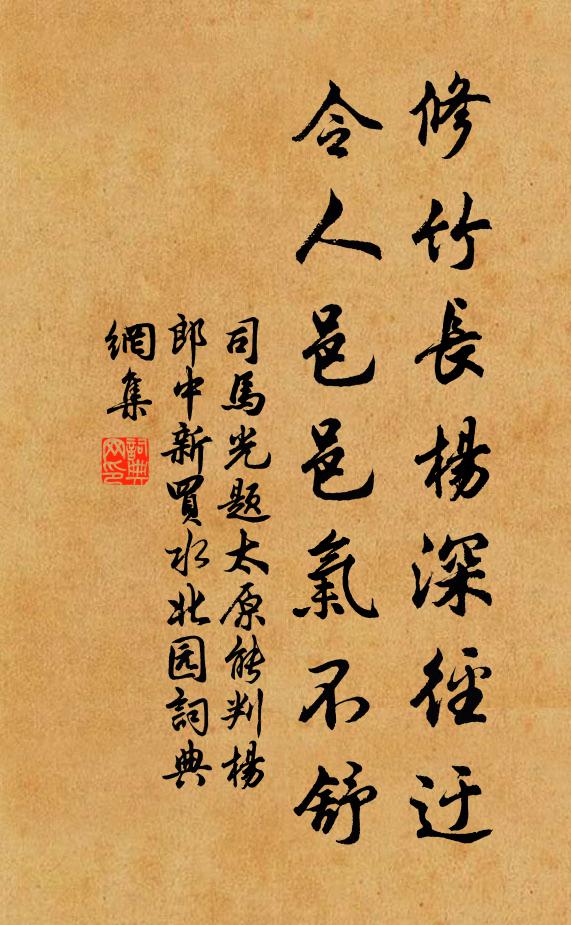 修竹長楊深徑迂
令人邑邑氣不舒
司馬光題太原能判楊
郎中新買水北园詞典
網集
詞典网印